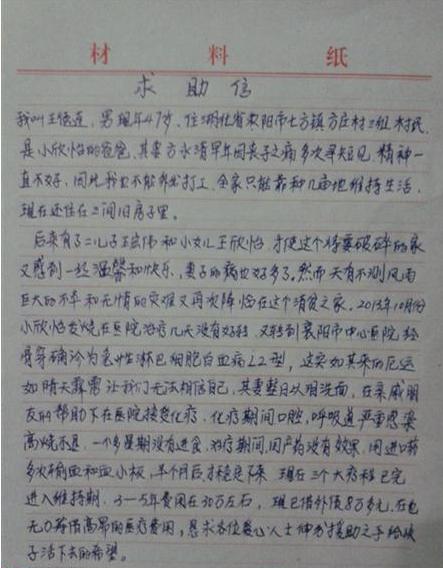 材 料 纸
求 助 信
我叫王德连,男现年47岁,住湖北省枣阳市七方镇方庄村三组村民,
是小欣怡的爸爸,其妻方永清早年因丧子之痛多次寻短见,精神一
直不好,因此我也不能外出打工,全家只能靠种几亩地维持生活,
现在还住在三间旧房子里。
后来有了二儿子王宏伟和小女儿王欣怡,才使这个将要破碎的家
又感到一丝温馨和快乐,妻子的病也好多了。然而天有不测风雨
巨大的不幸和无情的灾难又再次降临在这个清贫之家。2013年10月份
小欣怡发烧在医院治疗几天没有好转,又转到襄阳市中心医院,经
骨穿确诊为急性淋巴细胞白血病L2型,这突如其来的厄运
如晴天霹雳让我们无法相信自己,其妻整日以泪洗面,在亲戚朋
友的帮助下在医院接受化疗,化疗期间口腔,呼吸道严重感染
高烧不退,一个多星期没有进食,治疗期间,国产药没有效果,用进口药
多次输血和血小板,半个月后才稳定下来,现在三个大疗程已完
进入维持期,3—5年费用在30万左右,现已借外债8万多元,在也
无力筹借高昂的医疗费用,恳求各位爱心人士伸出援助之手给孩
子活下去的希望。